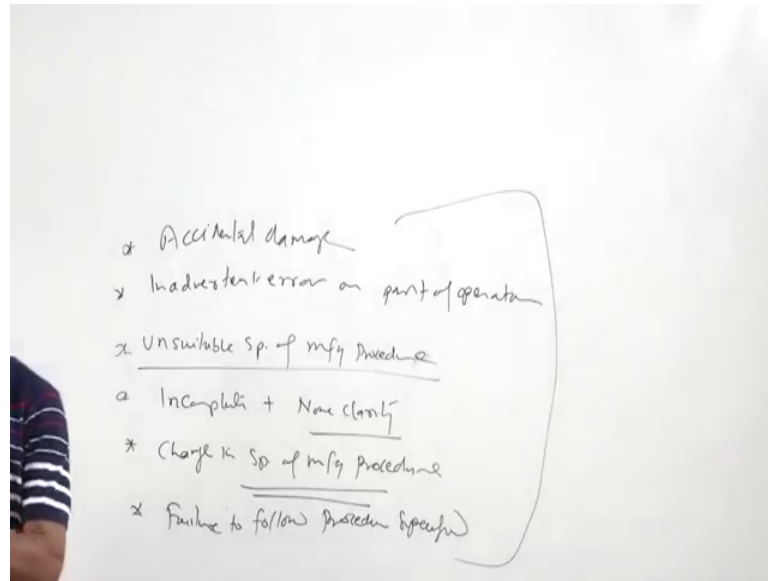 * Accidental damage
* Inadvertent error on part of operator
* Unsuitable Sp. of mfg Procedure
* Incomplete + None clarity
* Change in Sp. of mfg Procedure
* Failure to follow Procedure Specified